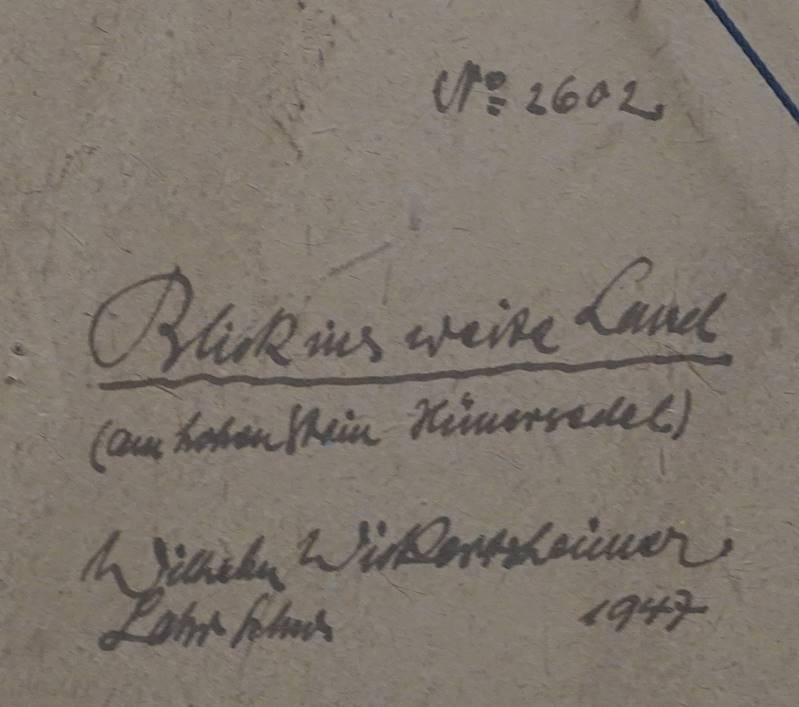 No 2602
Blick ins weite Land
(am hohen Stein Hünersedel)
Wilhelm Wickertsheimer.
Lahr 1947